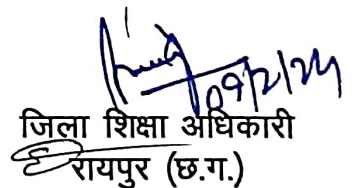 09/2/24
जिला शिक्षा अधिकारी
रायपुर (छ.ग.)